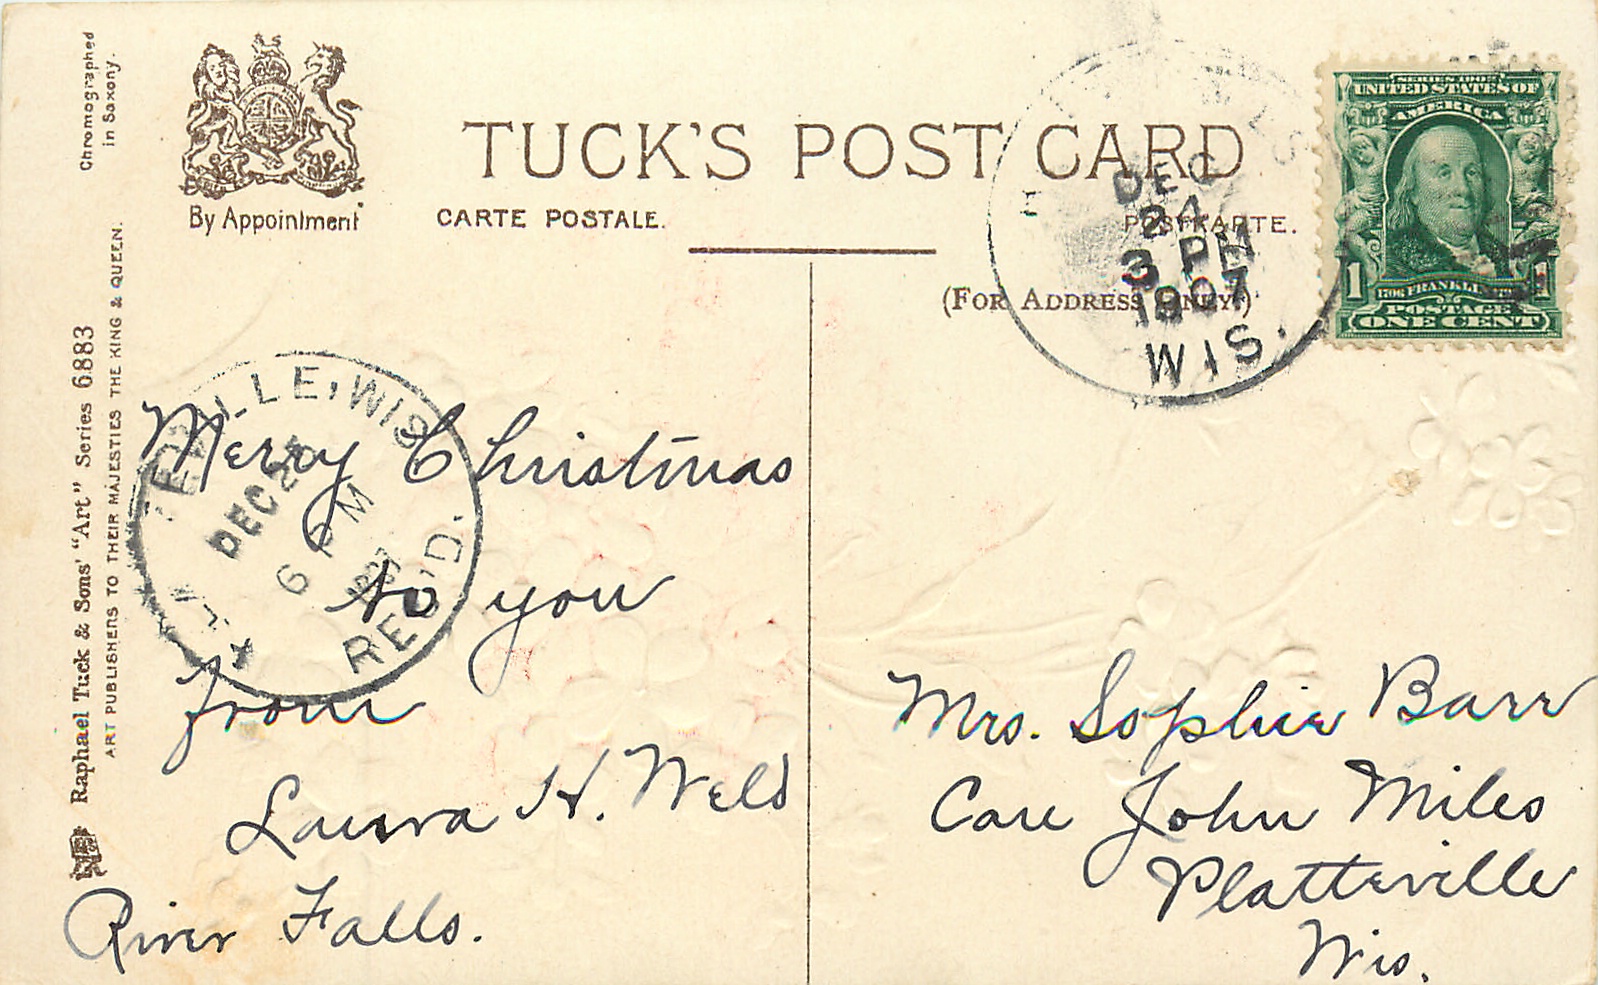 Chromographed
in Saxony.
By Appointment
TUCK'S POST CARD
CARTE POSTALE.
POSTKARTE.
(FOR ADDRESS ONLY.)
DEC
24
3 PM
1907
WIS.
SERIES 1902
UNITED STATES OF
AMERICA
1
1
1706 FRANKLIN
POSTAGE
ONE CENT
Raphael Tuck & Sons' "Art" Series 6883
ART PUBLISHERS TO THEIR MAJESTIES THE KING & QUEEN.
EVILLE, WIS
DEC
6 PM
1907
REC'D.
Merry Christmas
to you
from
Laura H. Weld
River Falls.
Mrs. Sophie Barr
Care John Miles
Platteville
Wis.